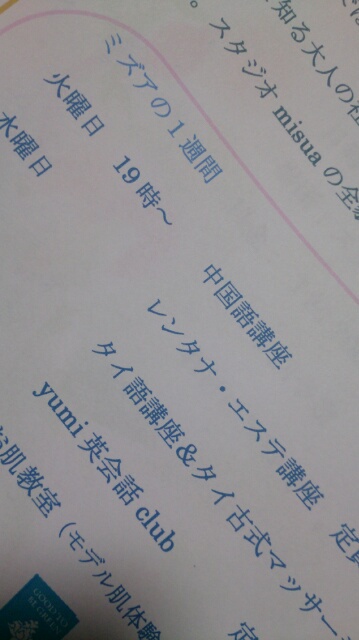 知る大人の社
。スタジオ misua の全
ミズアの1週間
火曜日　19時～　中国語講座
レンタナ・エステ講座　定員
水曜日
タイ語講座＆タイ古式マッサー
yumi 英会話 club
お肌教室（モデル肌体験
定